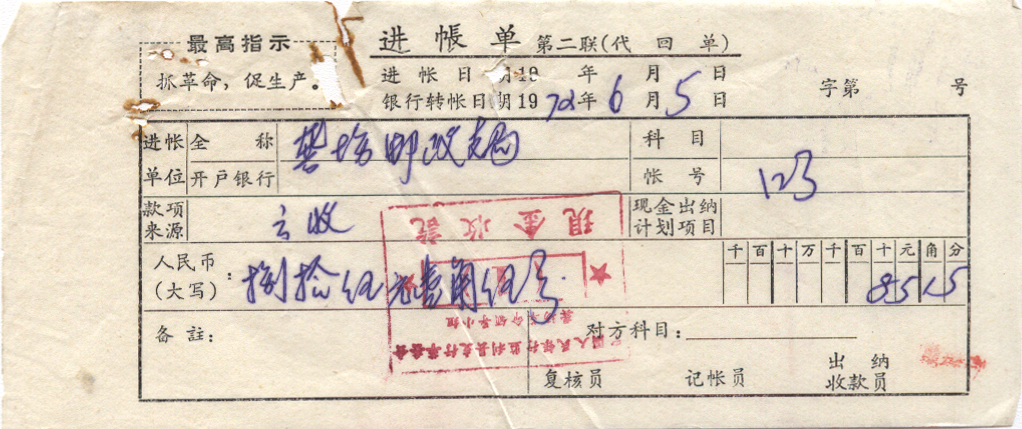 最高指示
抓革命，促生产。
进帳单 第二联(代回单)
进帐日期19 年 月 日
银行转帐日期1972年6月5日
字第 号
进帐单位 全称 龚场邮政支局 科目
开户银行 帐号 123
款项来源 云收 现金出纳计划项目
人民币(大写): 捌拾伍元壹角伍分
千百十万千百十元角分
8515
现金收讫
中国人民银行监利县支行革委会
龚场革命领导小组
备註: 对方科目:
复核员 记帐员 出纳收款员